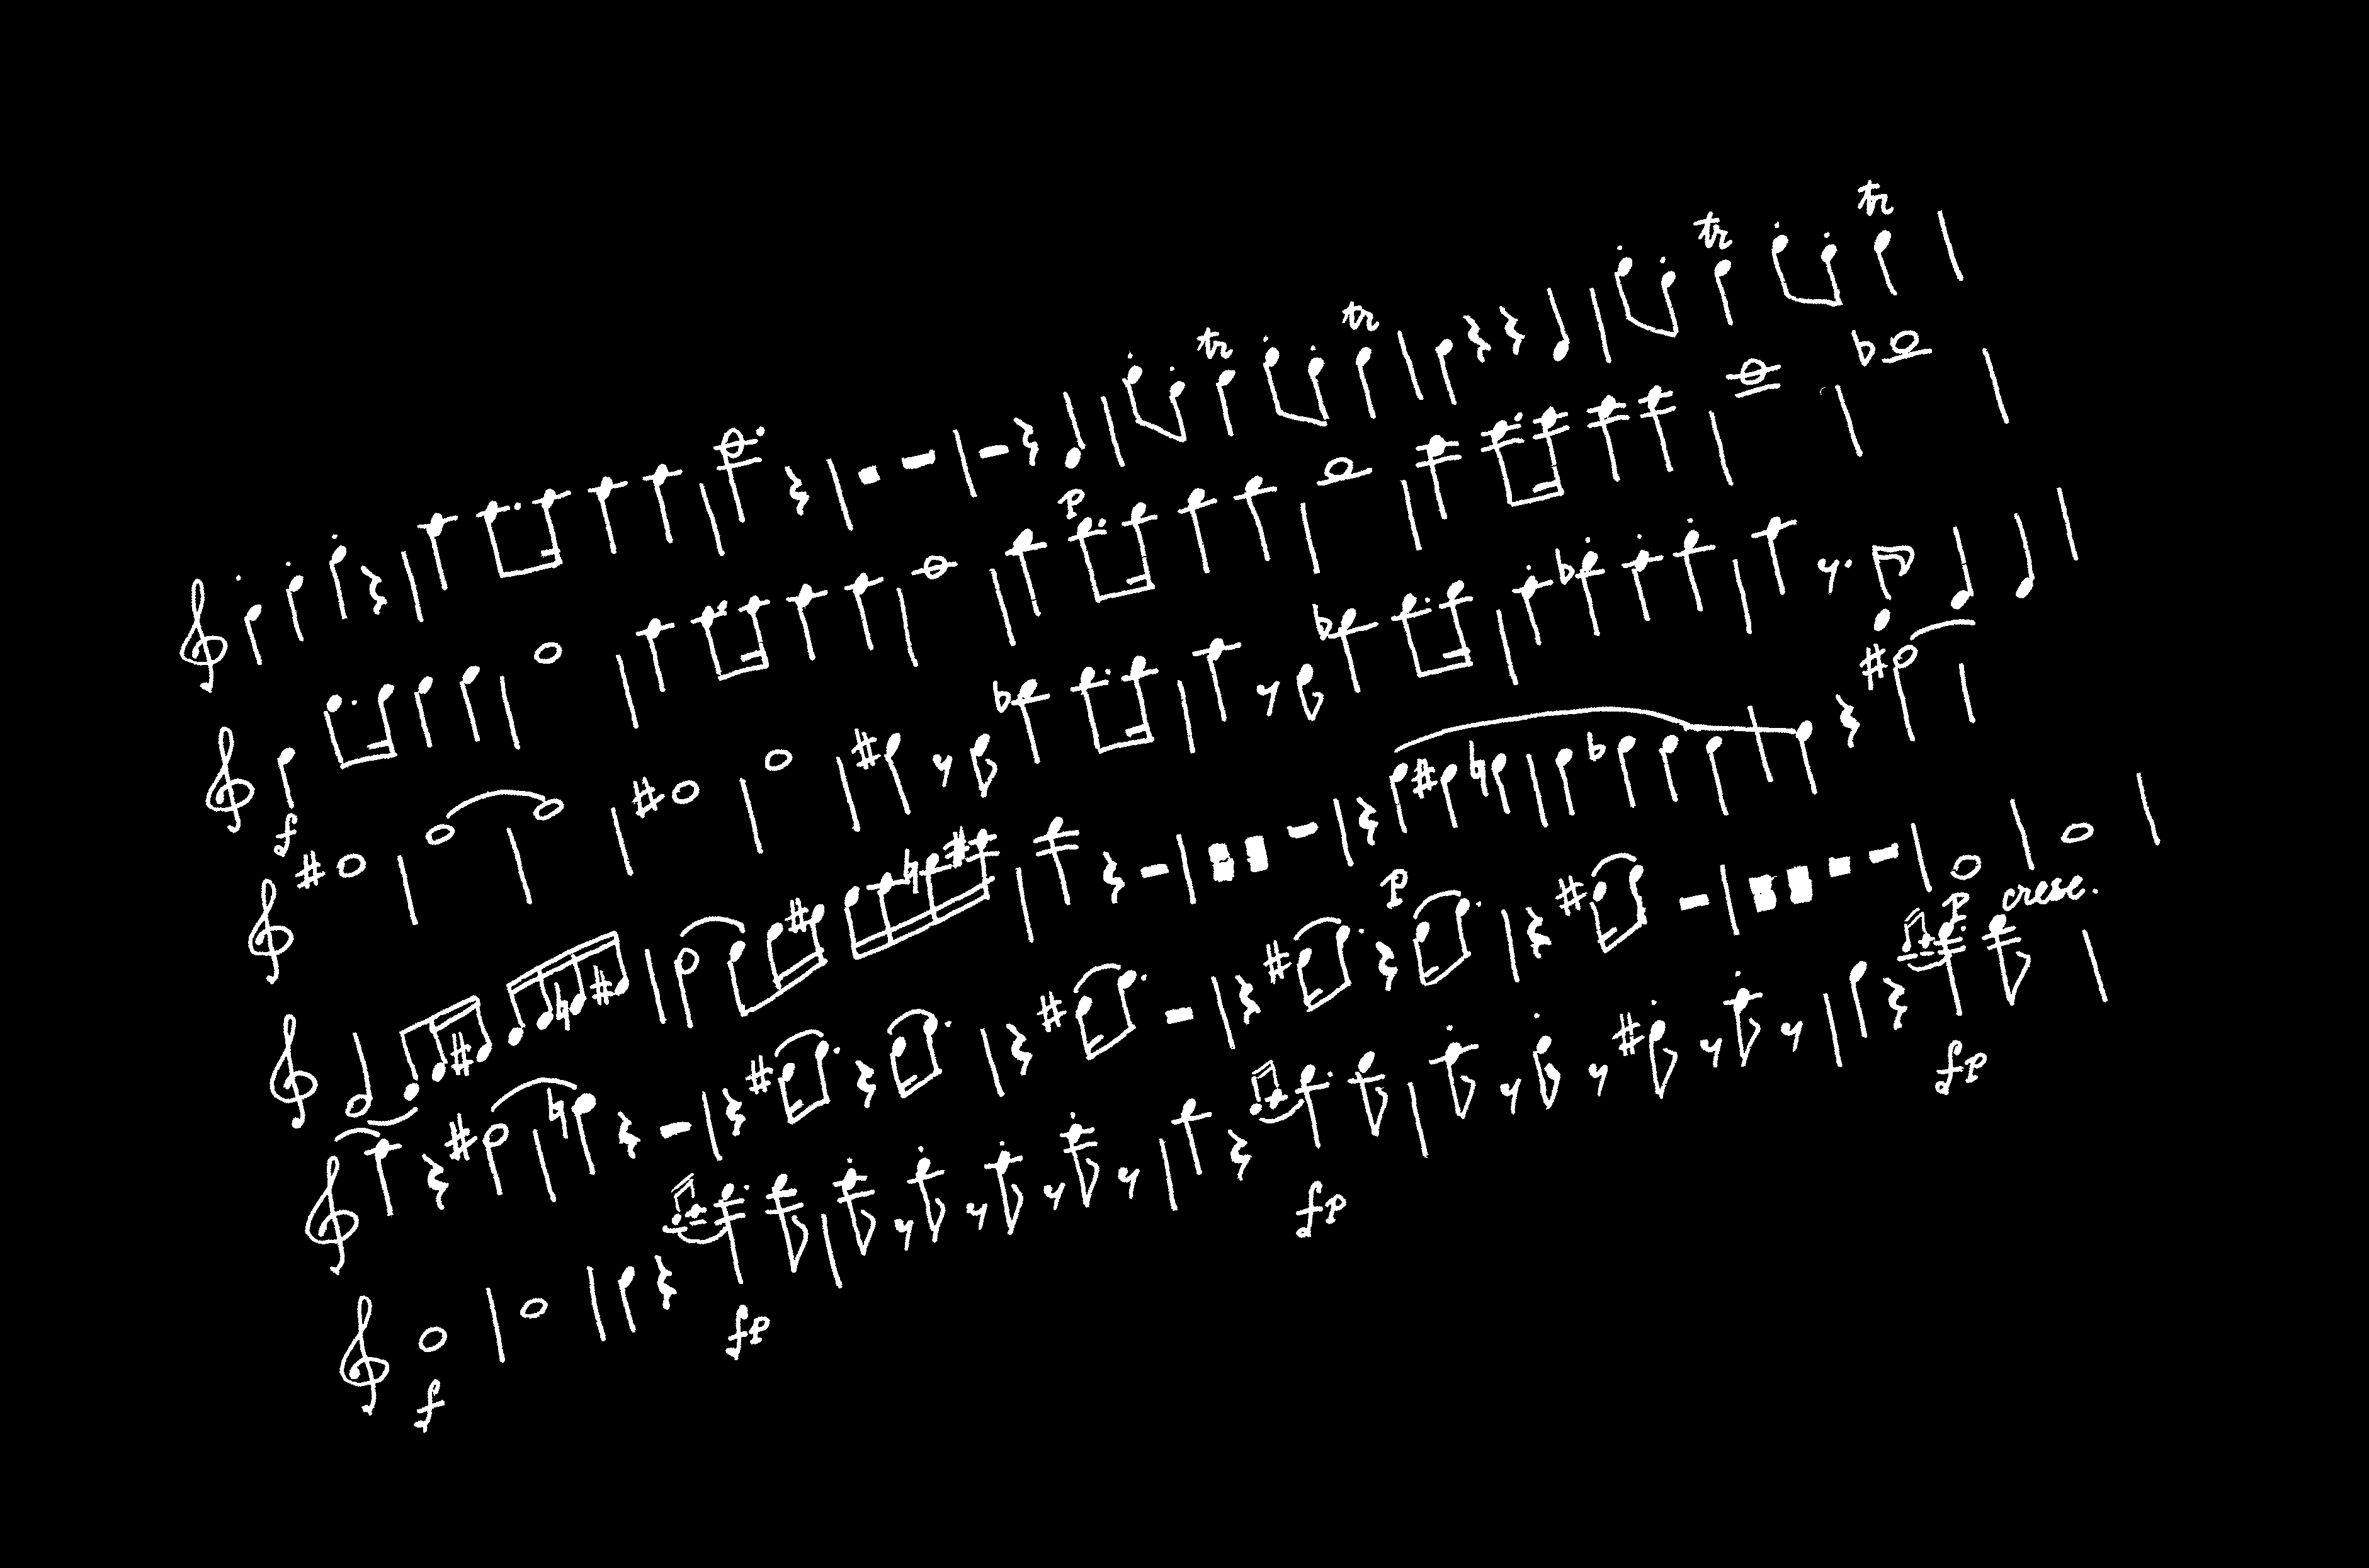 tr tr tr tr
p
f
p
p cresc.
fp
fp
fp
f